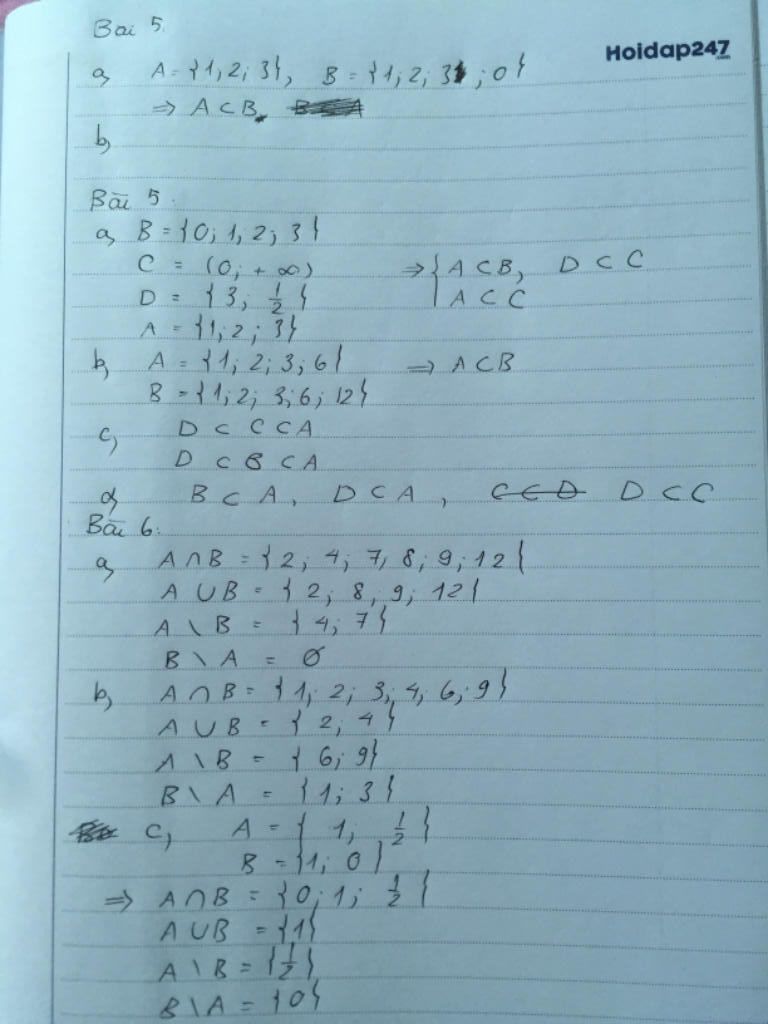 Bài 5.
Hoidap247.com
a, A = {1; 2; 3}, B = {1; 2; 3; 0}
⇒ A ⊂ B,
b,
Bài 5.
a, B = {0; 1, 2; 3}
C = (0; +∞) ⇒ { A ⊂ B, D ⊂ C
D = {3; 1/2} A ⊂ C
A = {1; 2; 3}
b, A = {1; 2; 3; 6} ⇒ A ⊂ B
B = {1; 2; 3; 6; 12}
c, D ⊂ C ⊂ A
D ⊂ B ⊂ A
d, B ⊂ A, D ⊂ A, C ⊂ D D ⊂ C
Bài 6:
a, A ∩ B = {2; 4; 7, 8; 9; 12}
A ∪ B = {2; 8, 9; 12}
A \ B = {4; 7}
B \ A = ∅
b, A ∩ B = {1; 2; 3; 4; 6; 9}
A ∪ B = {2; 4}
A \ B = {6; 9}
B \ A = {1; 3}
c, A = {1; 1/2}
B = {1; 0}
⇒ A ∩ B = {0; 1; 1/2}
A ∪ B = {1}
A \ B = {1/2}
B \ A = {0}